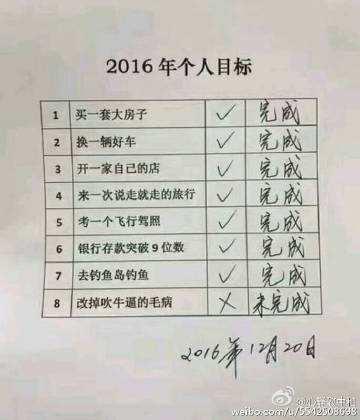 2016年个人目标
1 买一套大房子 ✓ 完成
2 换一辆好车 ✓ 完成
3 开一家自己的店 ✓ 完成
4 来一次说走就走的旅行 ✓ 完成
5 考一个飞行驾照 ✓ 完成
6 银行存款突破9位数 ✓ 完成
7 去钓鱼岛钓鱼 ✓ 完成
8 改掉吹牛逼的毛病 × 未完成
2016年12月20日
weibo.com/u/5542508698